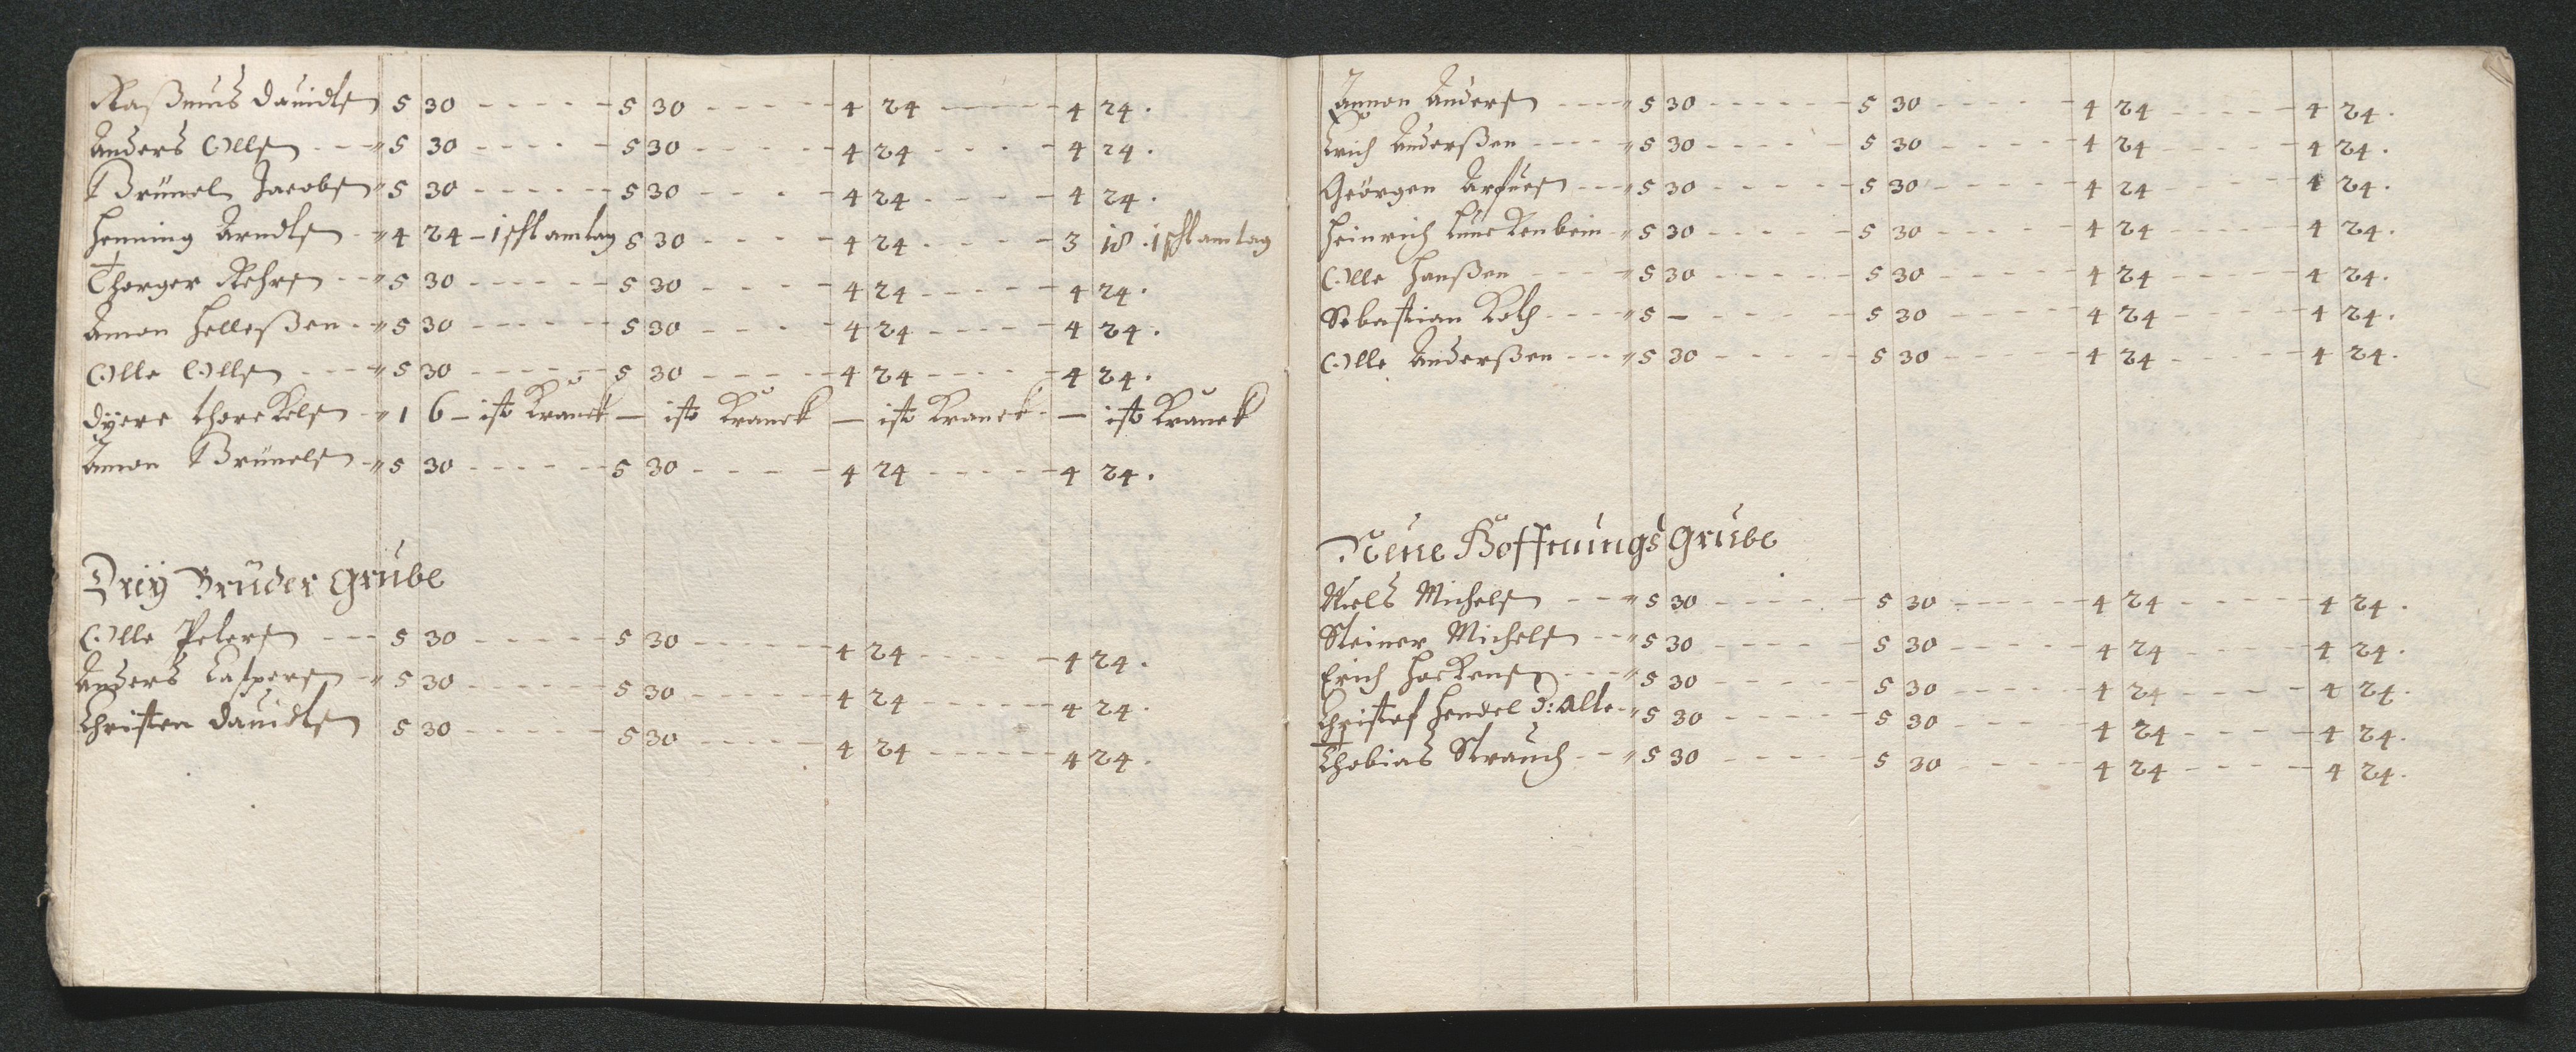 Raßmus Dauidtsen 5 30 - - - - - 5 30 - - - - - 4 24 - - - - - 4 24.
Anders Ollsen - - " 5 30 - - - - - 5 30 - - - - - 4 24 - - - - - 4 24.
Brünel Jacobsen " 5 30 - - - - - 5 30 - - - - - 4 24 - - - - - 4 24.
Henning Arndtsen - " 4 24 - 1 schl am tag 5 30 - - - - 4 24 - - - - 3 18 . 1 schl am tag
Thorger Rehrsen - - " 5 30 - - - - - 5 30 - - - - 4 24 - - - - - 4 24.
Amon Helleßen - " 5 30 - - - - - 5 30 - - - - 4 24 - - - - - 4 24.
Olle Ollsen - - - " 5 30 - - - - - 5 30 - - - - 4 24 - - - - - 4 24.
Dÿere thorckelsen - " 1 6 - ist Kranck - ist Kranck - ist Kranck - ist Kranck
Amon Brünelsen - " 5 30 - - - - - 5 30 - - - - 4 24 - - - - - 4 24.
Dreÿ Brüder Grube
Olle Petersen - - - 5 30 - - - - - 5 30 - - - - - 4 24 - - - - - 4 24.
Anders Caspersen - " 5 30 - - - - - 5 30 - - - - - 4 24 - - - - - 4 24.
Christen Dauidtsen 5 30 - - - - - 5 30 - - - - - 4 24 - - - - - 4 24.
Ammon Andersen - - - " 5 30 - - - - - 5 30 - - - - - 4 24 - - - - 4 24.
Erich Anderßen - - - - " 5 30 - - - - - 5 30 - - - - - 4 24 - - - - 4 24.
Geörgen - - - " 5 30 - - - - - 5 30 - - - - - 4 24 - - - - 4 24.
Heinrich Lunckenbein - " 5 30 - - - - - 5 30 - - - - - 4 24 - - - - 4 24.
Olle Hanßen - - - - " 5 30 - - - - - 5 30 - - - - - 4 24 - - - - 4 24.
Sebastian Koch - - - - " 5 - - - - - - 5 30 - - - - - 4 24 - - - - 4 24.
Olle Anderßen - - - " 5 30 - - - - - 5 30 - - - - - 4 24 - - - - 4 24.
Neue Hoffnungs Grube
Niels Michelsen - - - " 5 30 - - - - - 5 30 - - - - - 4 24 - - - - 4 24.
Steiner Michelsen - - " 5 30 - - - - - 5 30 - - - - - 4 24 - - - - 4 24.
Erich Hackensen - - - " 5 30 - - - - - 5 30 - - - - - 4 24 - - - - 4 24.
Christof Hendel D: Alte - " 5 30 - - - - - 5 30 - - - - - 4 24 - - - - 4 24.
Thobias Strauch - - " 5 30 - - - - - 5 30 - - - - - 4 24 - - - - 4 24.